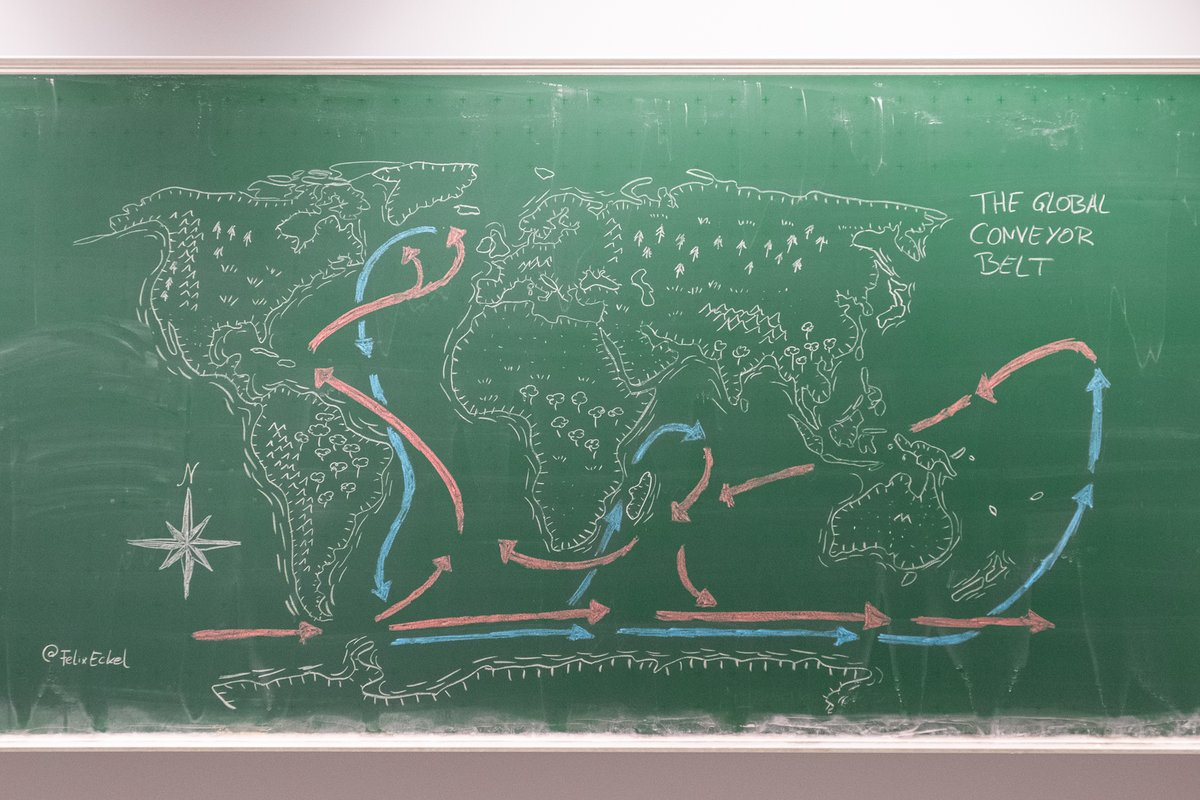 THE GLOBAL
CONVEYOR
BELT
N
@FelixEckel